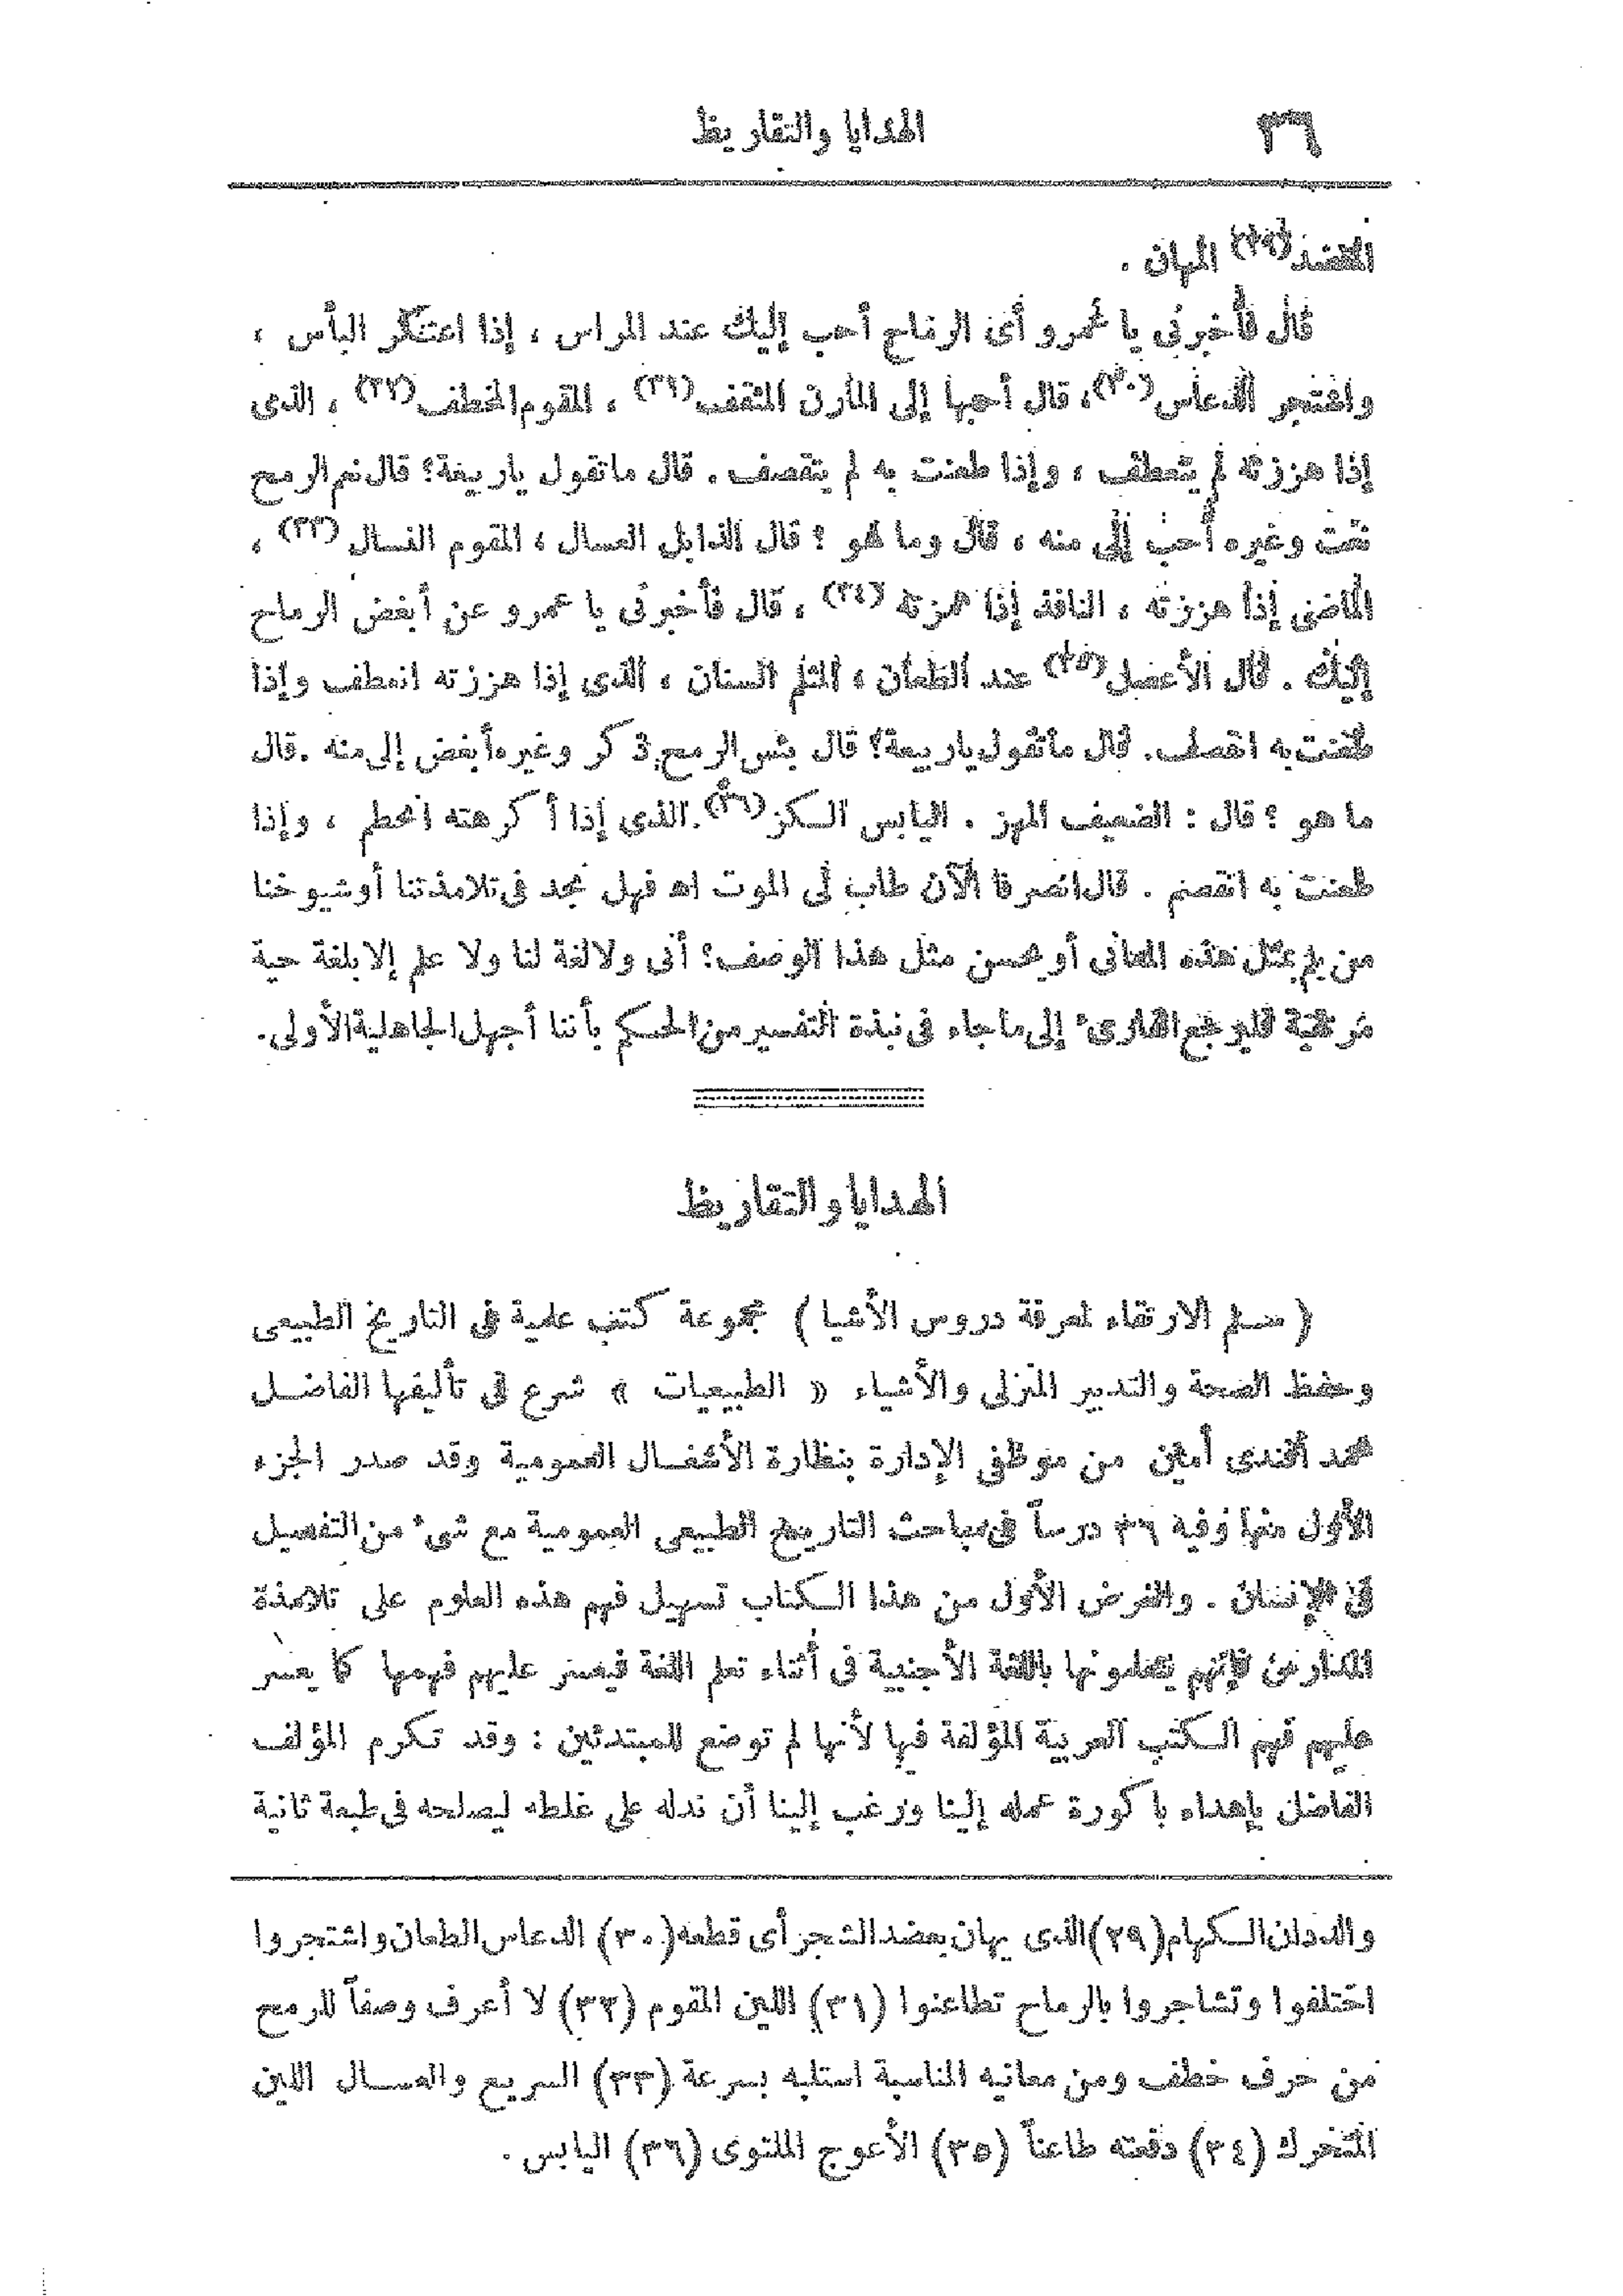 ٣٦
الهدايا والتقاريظ
المعضد(٢٩) المهان .
قال فأخبرنى يا عمرو أى الرماح أحب إليك عند المراس ، إذا اعتكر البأس ،
واشتجر الدعاس(٣٠)، قال أحبها إلى المارن المثقف(٣١) ، المقوم المخطف(٣٢) ، الذى
إذا هززته لم يتعطف ، وإذا طعنت به لم يتقصف . قال ماتقول ياربيعة؟ قال نعم الرمح
نعت وغيره أحب إلى منه ، قال وما هو ؟ قال الذابل العسال ، المقوم النسال (٣٣) ،
الماضى إذا هززته ، النافذ إذا همزته (٣٤) ، قال فأخبرنى يا عمرو عن أبغض الرماح
إليك . قال الأعصل(٣٥) عند الطعان ، المثلم السنان ، الذى إذا هززته انعطف وإذا
طعنت به انقصف. قال ماتقول ياربيعة؟ قال بئس الرمح ذكر وغيره أبغض إلى منه . قال
ما هو ؟ قال : الضعيف المهز . اليابس الكز(٣٦). الذى إذا أكرهته انحطم ، وإذا
طعنت به انقصم . قال انصرفا الآن طاب لى الموت اهـ فهل نجد فى تلامذتنا أو شيوخنا
من يلم بمثل هذه المعانى أو يحسن مثل هذا الوصف؟ أنى ولا لغة لنا ولا علم إلا بلغة حية
مرتقية فليرجع القارىء إلى ما جاء فى نبذة التفسير من الحكم بأننا أجهل الجاهلية الأولى.
الهدايا والتقاريظ
( سلم الارتقاء لمعرفة دروس الأشيا ) مجموعة كتب علمية فى التاريخ الطبيعى
وحفظ الصحة والتدبير المنزلى والأشياء « الطبيعيات » شرع فى تأليفها الفاضل
محمد أفندى أمين من موظفى الإدارة بنظارة الأشغال العمومية وقد صدر الجزء
الأول منها وفيه ٣٦ درساً فى مباحث التاريخ الطبيعى العمومية مع شىء من التفصيل
فى الإنسان . والغرض الأول من هذا الكتاب تسهيل فهم هذه العلوم على تلامذة
المدارس فإنهم يتعلمونها باللغة الأجنبية فى أثناء تعلم اللغة فيعسر عليهم فهمها كما يعسر
عليهم فهم الكتب العربية المؤلفة فيها لأنها لم توضع للمبتدئين : وقد تكرم المؤلف
الفاضل بإهداء باكورة عمله إلينا ورغب إلينا أن ندله على غلطه ليصلحه فى طبعة ثانية
والددان الكهام(٢٩)الذى يهان بعضد الشجر أى قطعه(٣٠) الدعاس الطعان واشتجروا
اختلفوا وتشاجروا بالرماح تطاعنوا (٣١) اللين المقوم (٣٢) لا أعرف وصفاً للرمح
من حرف خطف ومن معانيه المناسبة استلبه بسرعة (٣٣) السريع والعسال اللين
المتحرك (٣٤) دفعته طاعناً (٣٥) الأعوج الملتوى (٣٦) اليابس .